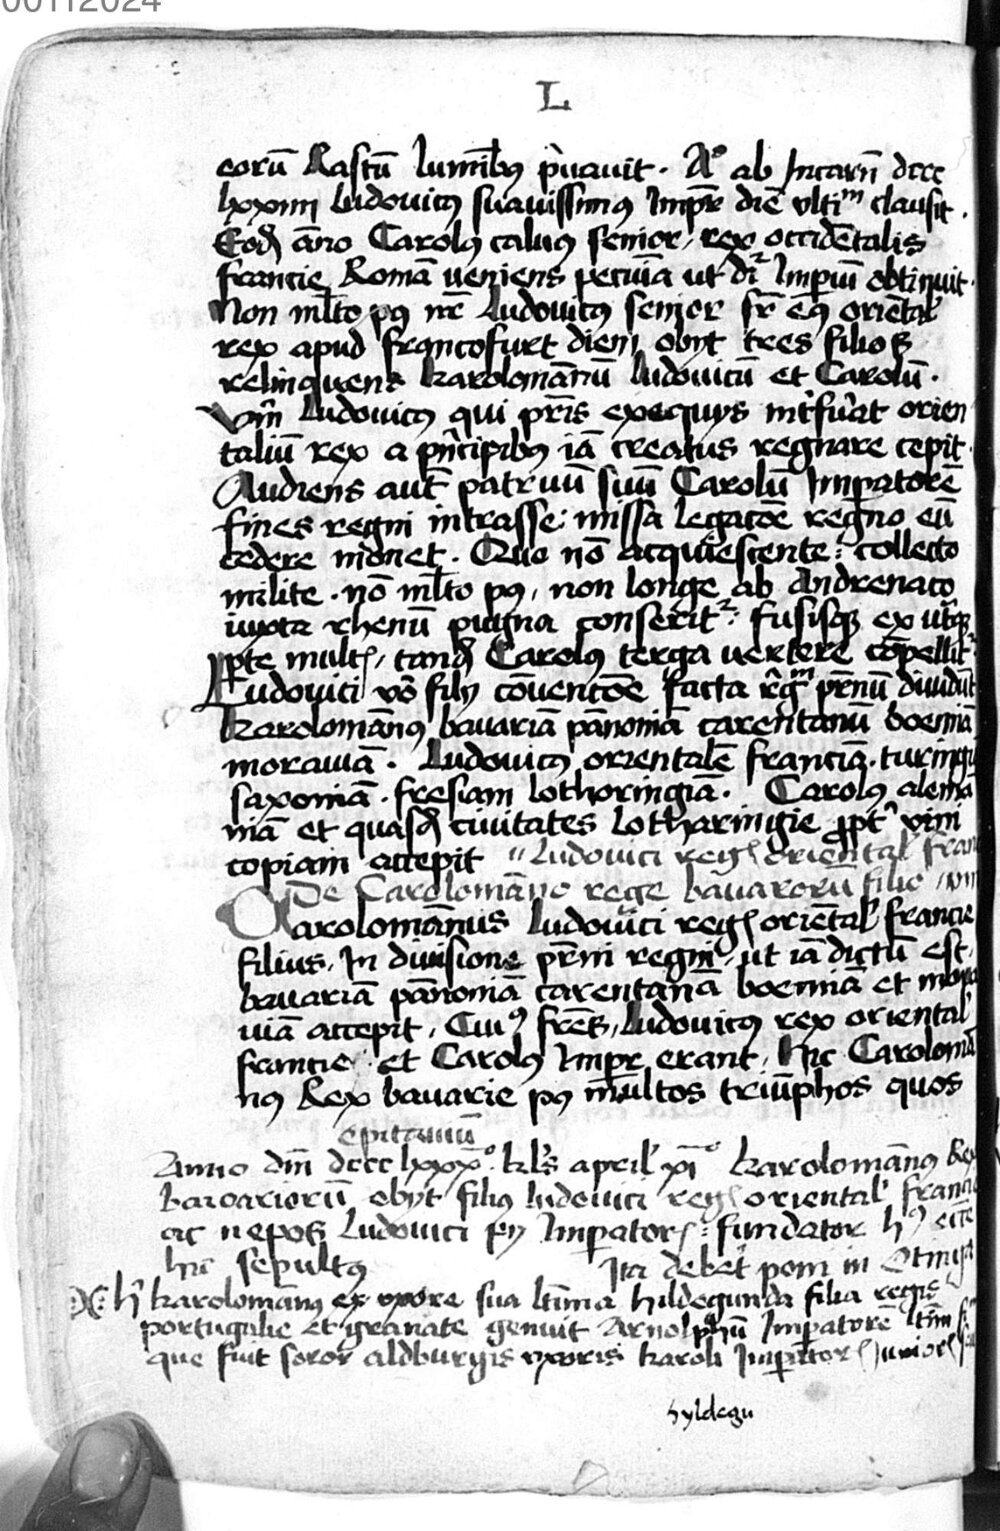 00112024
L
eorū Rastū lumībꝰ p̄uauit · Aᵒ ab Incarn̄ dccc
lxxiiii Ludouicꝰ suauissimꝰ Imꝑr diē vltiᵐ clausit ·
Eodꝫ āno Carolꝰ caluꝰ senior, rex occidētalis
francie Romā ueniens pecuīa ut dr̄ Imperiū obtinuit ·
Non ml̄to pꝰ nr̄ Ludouicꝰ senior fr̄ eiꝰ oriētal
rex apud francofurt diem obyt tres filios
relinquens karolomānū Ludouicū et Carolū ·
Vn̄ Ludouicꝰ qui pr̄is exequys int̄fuāt orien
taliū rex a pn̄cipibꝰ iā creatus regnare cepit ·
Audiens aut̄ patruū suū Carolū Imꝑatorē
fines regni intrasse: missa legacōe regno eū
cedere monet · Quo nō acquiescente: collecto
milite · nō ml̄to pꝰ, non longe ab Andrenaco
iuxta rhenū pugna conserit᷑: fusisqꝫ ex ut̄qꝫ
ꝑte mult, tandꝫ Carolꝰ terga uertere cōpellit᷑
Ludouici vō fily cōuencōe facta rḡᵐ pr̄nū diuidūt
karolomānꝰ bauariā pānoniā carentanū boemiā
morauiā · Ludouicꝰ orientalē franciā · turingi
saxoniā · fresiam lothoringiā · Carolꝰ alema
niā et quasdꝫ ciuitates Lotharingie ꝓpt̄ vini
copiam accepit " Ludouici reg oriental fran
De Carolomāno rege bauarorū filio
Carolomānus Ludouici reg oriētal francie
filius, In diuisione pr̄ni regni, ut iā dictū est,
bauariā pānoniā carentanā boemiā et mora
uiā accepit, Cuiꝰ fr̄es, Ludouicꝰ rex oriental
francie, et Carolꝰ Imꝑr erant, hic Caroloma
nꝰ Rex bauarie pꝰ multos triūphos quos
epitauiū
Anno dn̄i dccc lxxxᵒ · kls april xiᵒ karolomānꝰ Rex
baioariorū obyt filiꝰ Ludouici reg oriental franci
ac nepos Ludouici py Imꝑator: fundator hꝰ
hic sepultꝰ
Ita debet poni in Otinga
h̄ karolomānꝰ ex uxore sua ltīma hildegunda filia regis
portugalie et granate genuit Arnolphū Imꝑatorē ltīm
que fuit soror aldburgis uxoris karoli Imꝑator Junior
hyldegu